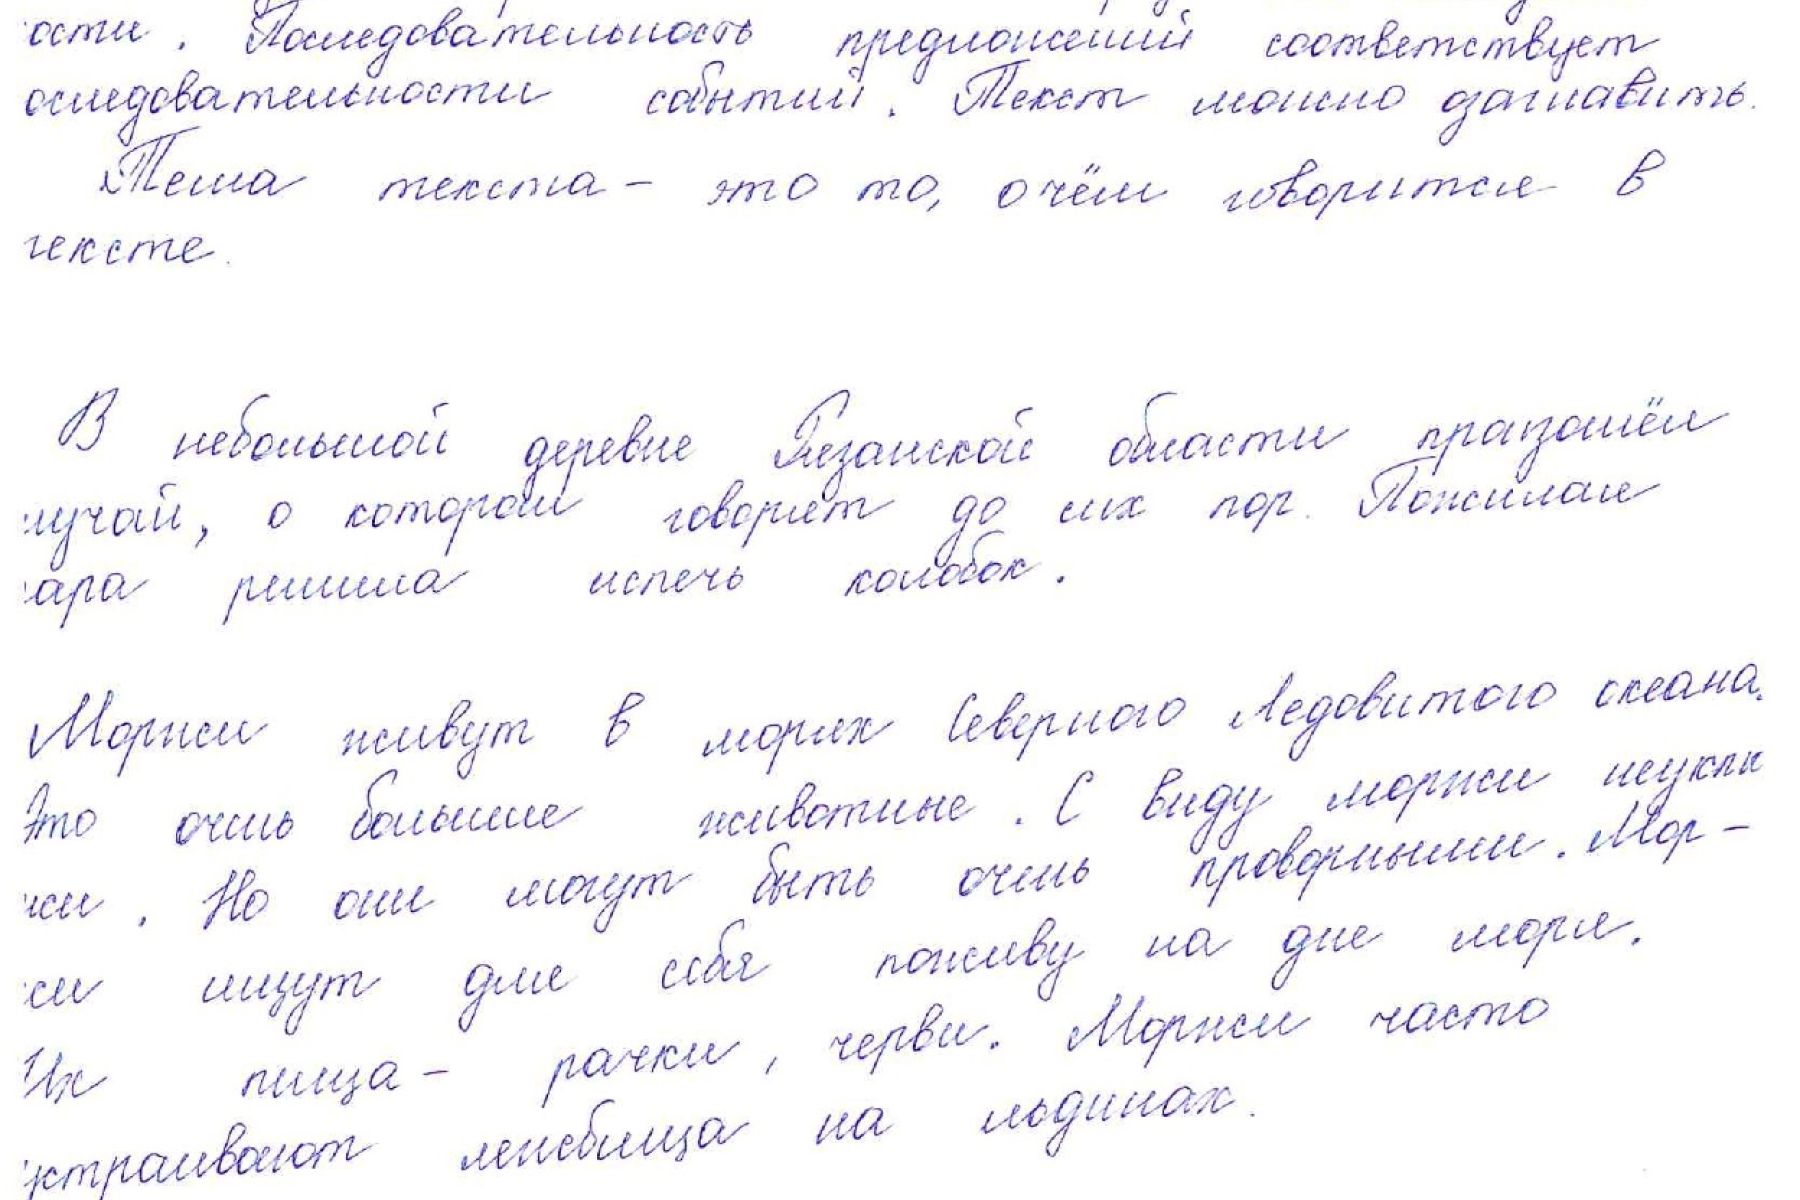 ости. Последовательность предложений соответствует
оследовательности событий. Текст можно озаглавить.
Тема текста – это то, о чём говорится в
тексте.
В небольшой деревне Рязанской области произошёл
лучай, о котором говорят до сих пор. Пожилая
ара решила испечь колобок.
Моржи живут в морях Северного Ледовитого океана.
Это очень большие животные. С виду моржи неуклю
жи. Но они могут быть очень проворными. Мор-
жи ищут для себя поживу на дне моря.
Их пища – рачки, черви. Моржи часто
устраивают лежбища на льдинах.